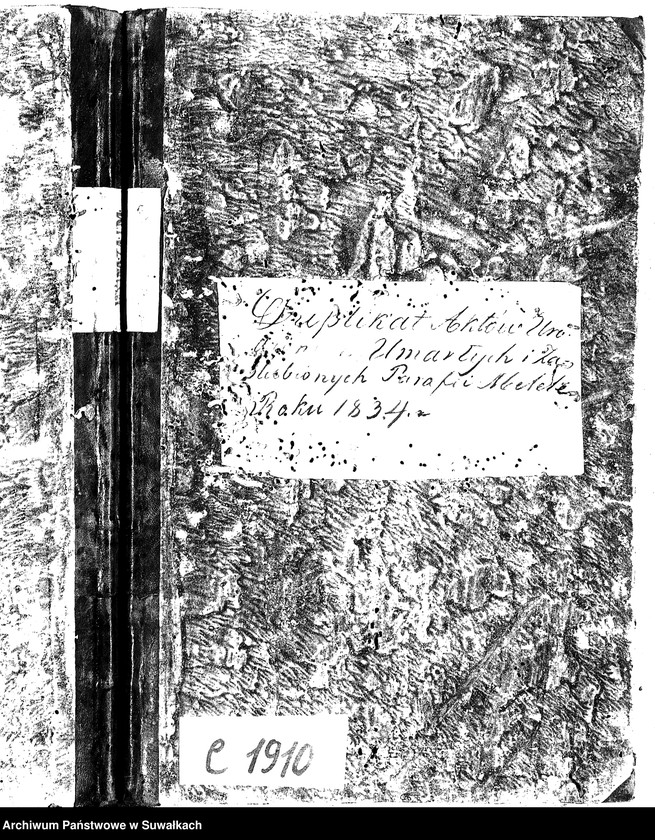 Duplikat Aktów Uro=
Umarłych i Za=
ślubionych Parafii
Roku 1834.
C 1910
Archiwum Państwowe w Suwałkach